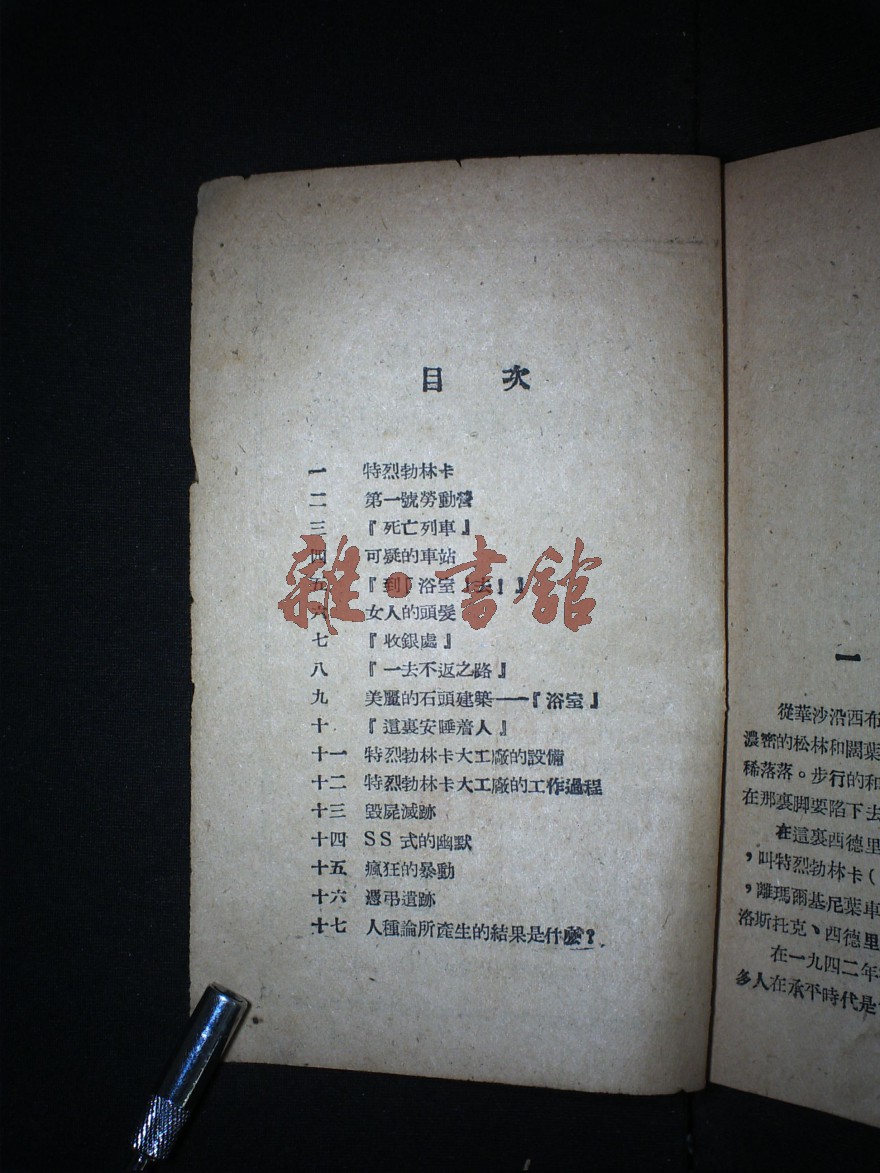 目 次
一 特烈勃林卡
二 第一號勞動營
三 『死亡列車』
四 可疑的車站
五 『到「浴室」去!』
六 女人的頭髮
七 『收銀處』
八 『一去不返之路』
九 美麗的石頭建築——『浴室』
十 『這裏安睡着人』
十一 特烈勃林卡大工廠的設備
十二 特烈勃林卡大工廠的工作過程
十三 毀屍滅跡
十四 SS 式的幽默
十五 瘋狂的暴動
十六 憑弔遺跡
十七 人種論所產生的結果是什麼?
雜·書舘
一
從華沙沿西布
濃密的松林和闊葉
稀落落。步行的和
在那裏脚要陷下去
在這裏西德里
,叫特烈勃林卡(
,離瑪爾基尼葉車
洛斯托克、西德里
在一九四二年
多人在承平時代是